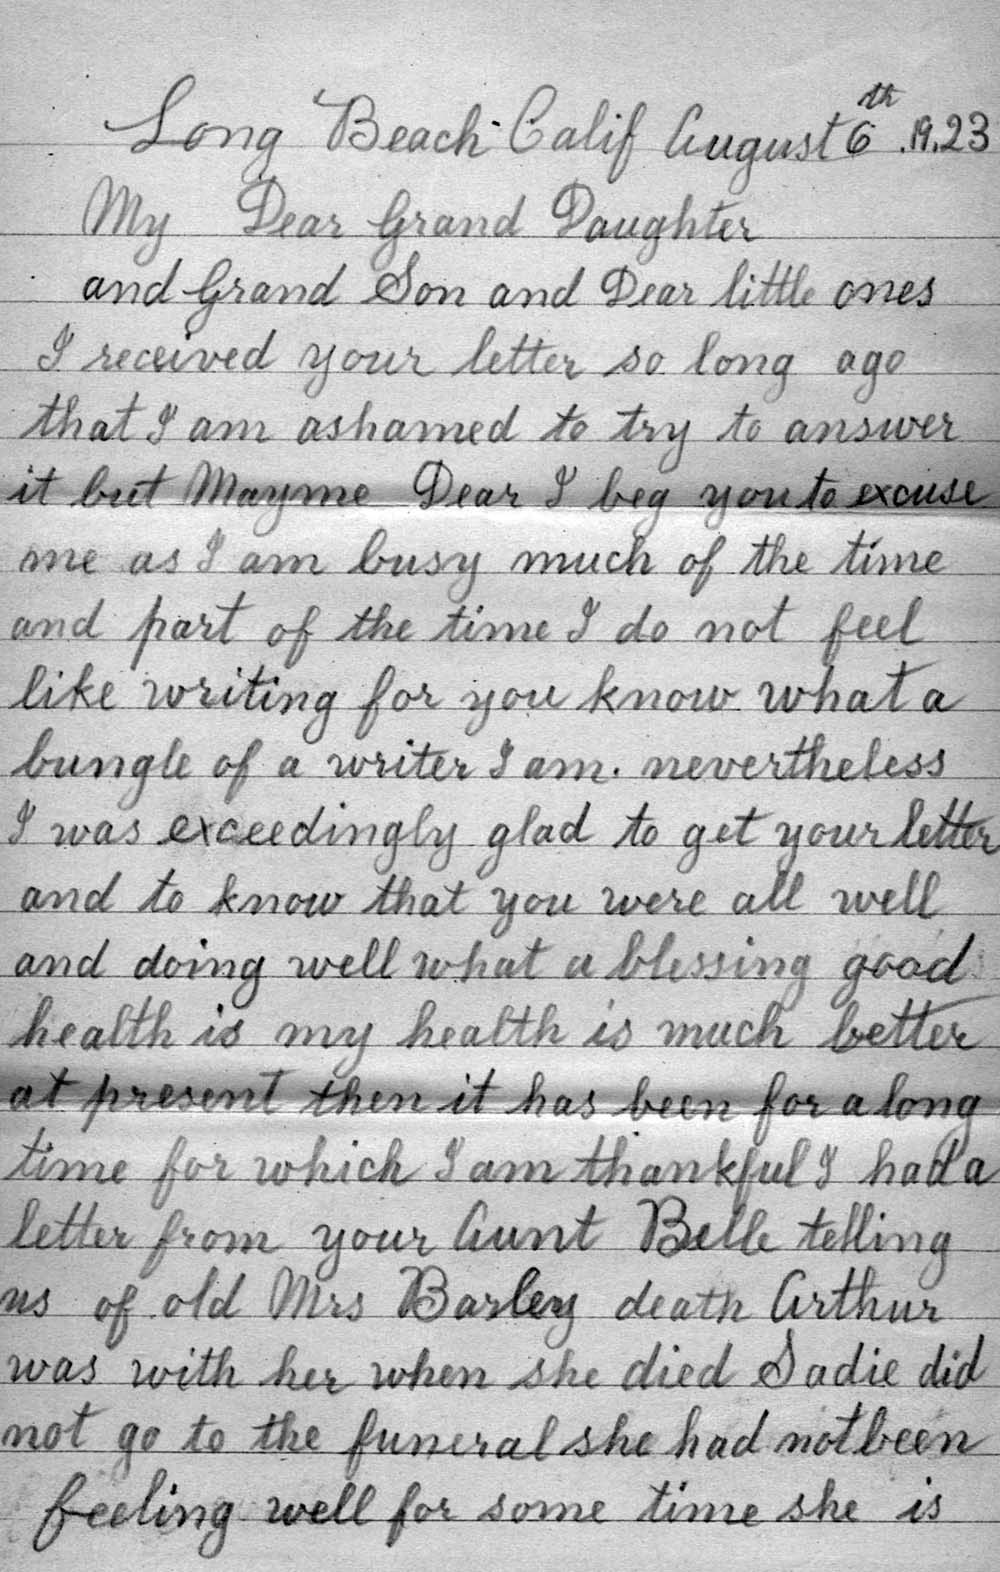 Long Beach Calif August 6th .19.23
My Dear Grand Daughter
and Grand Son and Dear little ones
I received your letter so long ago
that I am ashamed to try to answer
it but Mayme Dear I beg you to excuse
me as I am busy much of the time
and part of the time I do not feel
like writing for you know what a
bungle of a writer I am. nevertheless
I was exceedingly glad to get your letter
and to know that you were all well
and doing well what a blessing good
health is my health is much better
at present then it has been for a long
time for which I am thankful I had a
letter from your Aunt Belle telling
us of old Mrs Barley death Arthur
was with her when she died Sadie did
not go to the funeral she had not been
feeling well for some time she is